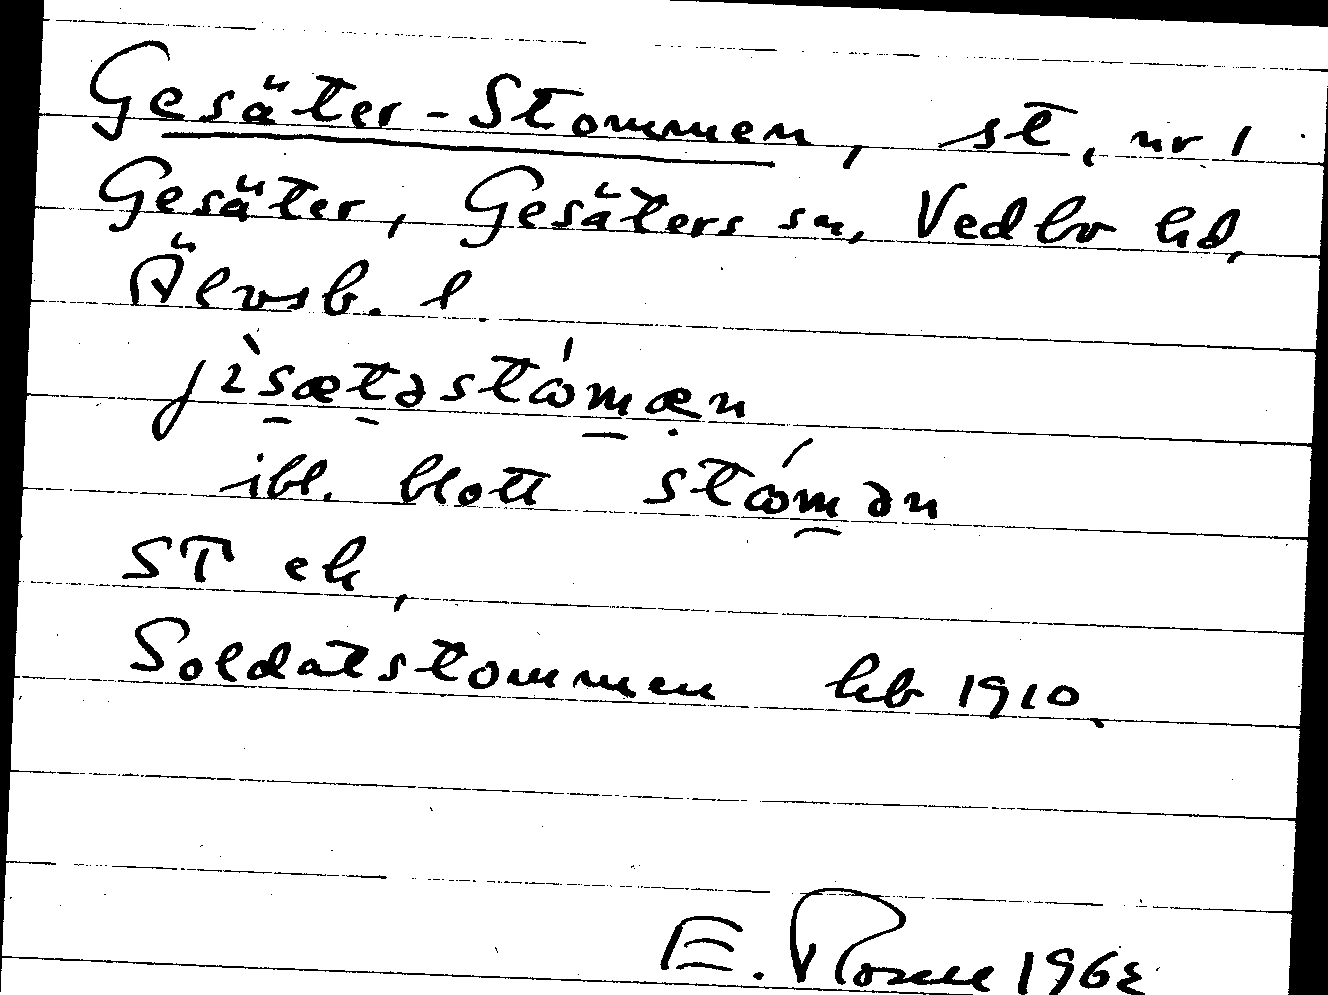 Gesäter-Stommen, st, nr 1
Gesäter, Gesäters sn, Vedbo hd,
Älvsb. l.
jìsætəstó̵mæn
ibl. blott stó̵mən
ST ek,
Soldatstommen hb 1910.
E. 1962